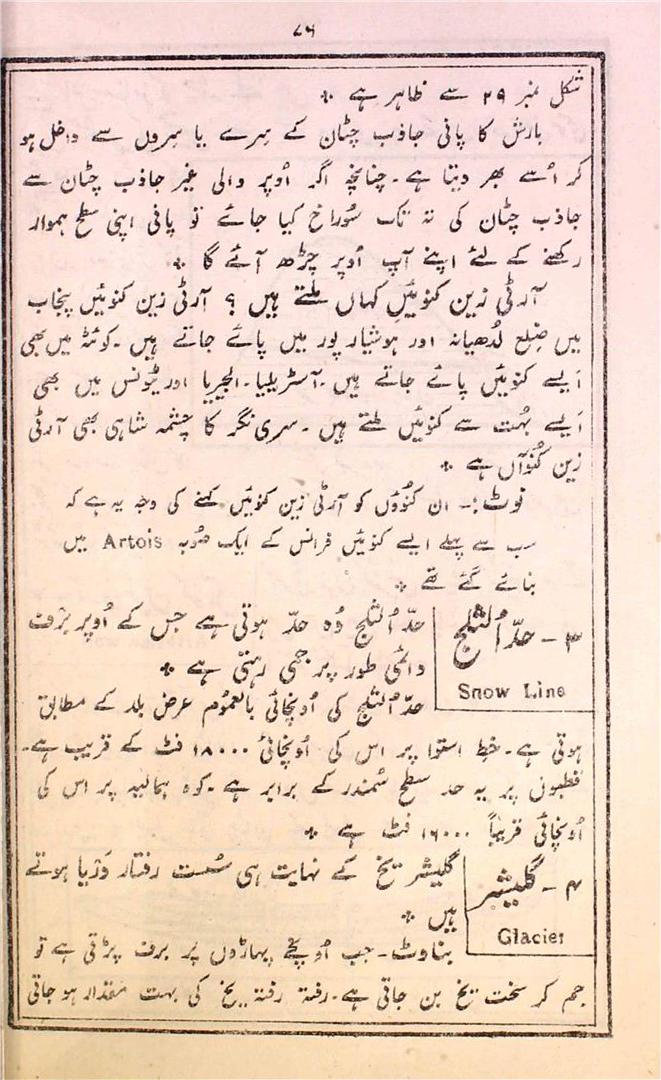 ۷۶
شکل نمبر ۲۹ سے ظاہر ہے ٭
بارش کا پانی جاذب چٹان کے سِرے یا سِروں سے داخل ہو
کر اُسے بھر دیتا ہے۔ چنانچہ اگر اُوپر والی غیر جاذب چٹان سے
جاذب چٹان کی تہ تک سُوراخ کیا جائے تو پانی اپنی سطح ہموار
رکھنے کے لئے اپنے آپ اُوپر چڑھ آئے گا ٭
آرٹی زین کنوئیں کہاں ملتے ہیں ؟ آرٹی زین کنوئیں پنجاب
میں ضلع لُدھیانہ اور ہوشیار پور میں پائے جاتے ہیں۔ کوئٹہ میں بھی
اَیسے کنوئیں پائے جاتے ہیں۔ آسٹریلیا۔ الجیریا اور ٹیونس میں بھی
اَیسے بہُت سے کنوئیں ملتے ہیں۔ سری نگر کا چشمہ شاہی بھی آرٹی
زین کُنوآں ہے ٭
نوٹ:۔ ان کنُوؤں کو آرٹی زین کنوئیں کہنے کی وجہ یہ ہے کہ
سب سے پہلے ایسے کنوئیں فرانس کے ایک صُوبہ Artois میں
بنائے گئے تھے ٭
۳۔ حدّ الثلج
Snow Line
حدّ الثلج وُہ حدّ ہوتی ہے جس کے اُوپر برَف
دائمی طور پر جمی رہتی ہے ٭
حدّ الثلج کی اُونچائی بالعمُوم عرض بلد کے مطابق
ہوتی ہے۔ خطِ استوا پر اس کی اُونچائی ۱۸۰۰۰ فٹ کے قریب ہے۔
قطبوں پر یہ حد سطح سمُندر کے برابر ہے۔ کوہ ہمالیہ پر اس کی
اُونچائی قریباً ۱۶۰۰۰ فٹ ہے ٭
۴۔ گلیشیر
Glacier
گلیشر یخ کے نہایت ہی سُست رفتار دَریا ہوتے
ہیں ٭
بناوٹ۔ جب اُونچے پہاڑوں پر برف پڑتی ہے تو
جم کر سخت یخ بن جاتی ہے۔ رفتہ رفتہ یخ کی بہت مقدار ہو جاتی